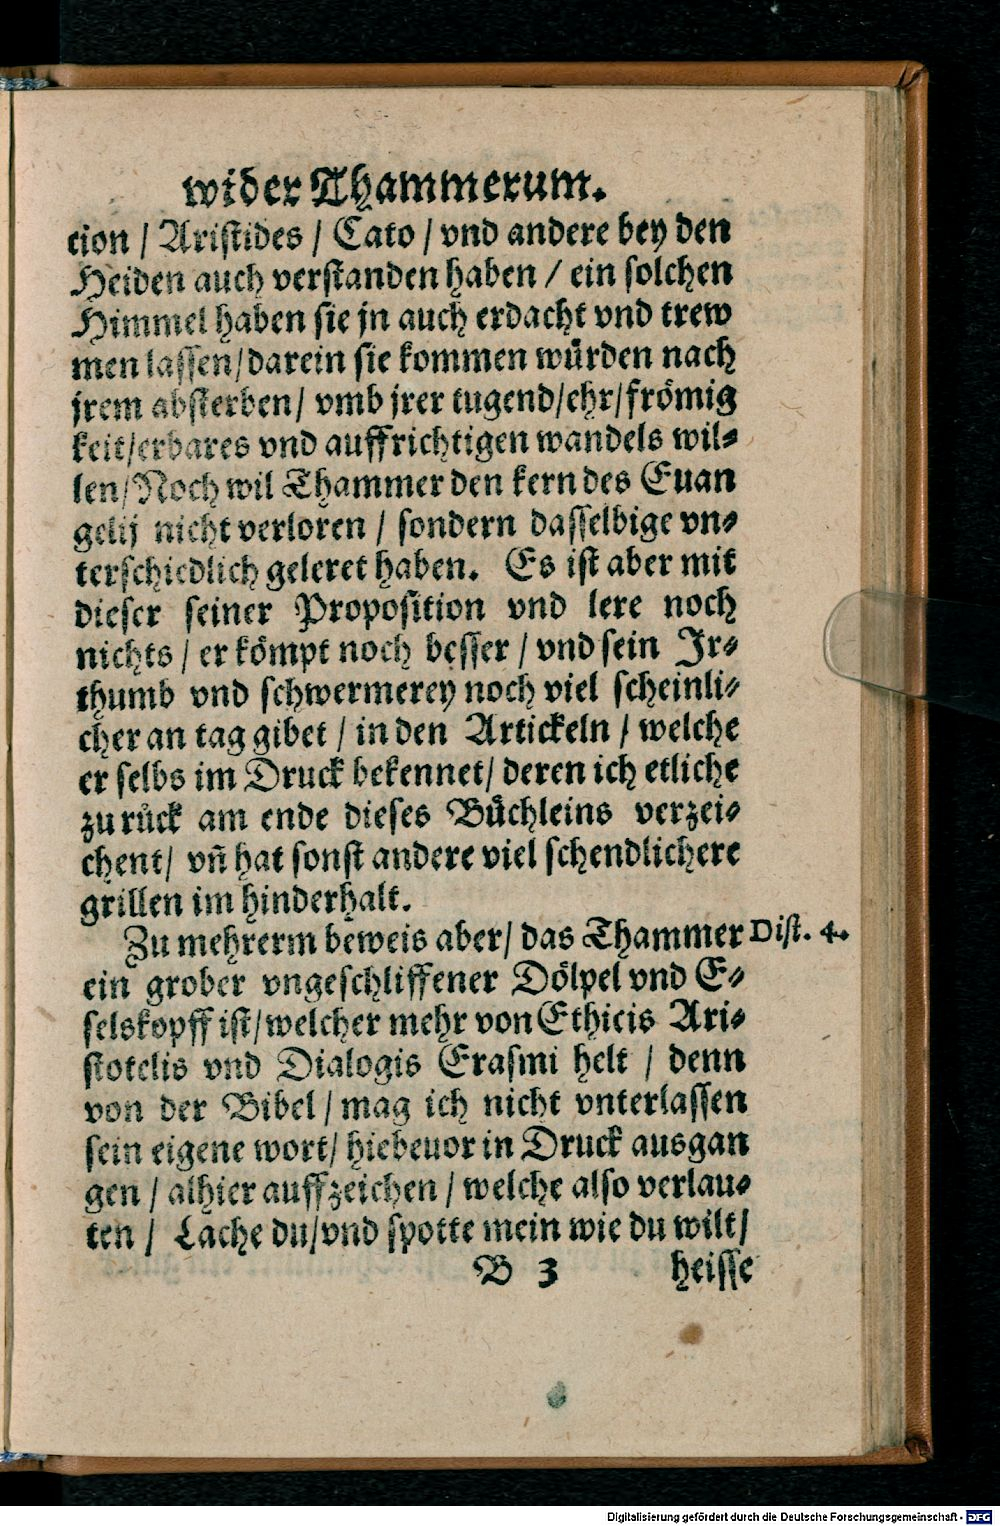 wider Thammerum.
cion / Aristides / Cato / vnd andere bey den
Heiden auch verstanden haben / ein solchen
Himmel haben sie jn auch erdacht vnd trew
men lassen/darein sie kommen würden nach
jrem absterben/ vmb jrer tugend/ehr/frömig
keit/erbares vnd auffrichtigen wandels wil⸗
len/Noch wil Thammer den kern des Euan
gelij nicht verloren / sondern dasselbige vn⸗
terschiedlich geleret haben. Es ist aber mit
dieser seiner Proposition vnd lere noch
nichts / er kömpt noch besser / vnd sein Ir⸗
thumb vnd schwermerey noch viel scheinli⸗
cher an tag gibet / in den Artickeln / welche
er selbs im Druck bekennet/ deren ich etliche
zu rück am ende dieses Büchleins verzei⸗
chent/ vñ hat sonst andere viel schendlichere
grillen im hinderhalt.
Zu mehrerm beweis aber/ das Thammer Dist. 4.
ein grober vngeschliffener Dölpel vnd E⸗
selskopff ist/welcher mehr von Ethicis Ari⸗
stotelis vnd Dialogis Erasmi helt / denn
von der Bibel / mag ich nicht vnterlassen
sein eigene wort/ hiebeuor in Druck ausgan
gen / alhier auffzeichen / welche also verlau⸗
ten / Lache du/vnd spotte mein wie du wilt/
B 3 heisse
Digitalisierung gefördert durch die Deutsche Forschungsgemeinschaft - DFG